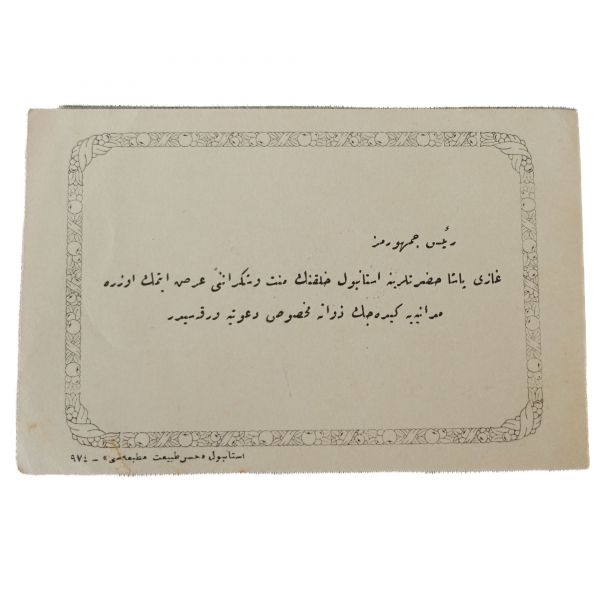 رئيس جمهورمز
غازى پاشا حضرتلرينه استانبول خلقنك منت وشكراننى عرض ايتمك اوزره
مدانيه‌يه كيده‌جك ذواته مخصوص دعوتيه ورقه‌سيدر
استانبول «حسن طبيعت مطبعه‌سى» – ٩٧٤